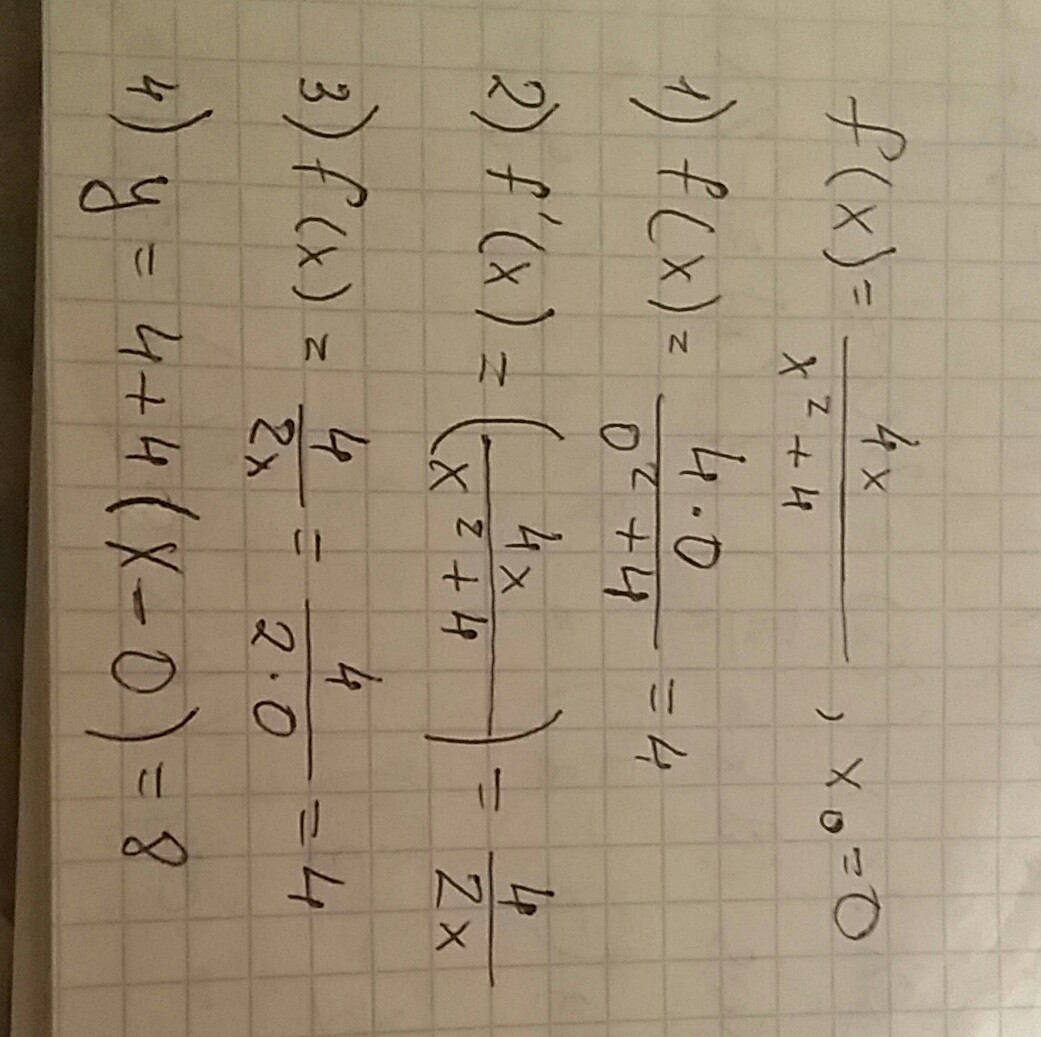 f(x) = 4x / x² + 4 , x₀ = 0
1) f(x) = 4·0 / 0² + 4 = 4
2) f'(x) = (4x / x² + 4) = 4 / 2x
3) f(x) = 4 / 2x = 4 / 2·0 = 4
4) y = 4 + 4(x - 0) = 8